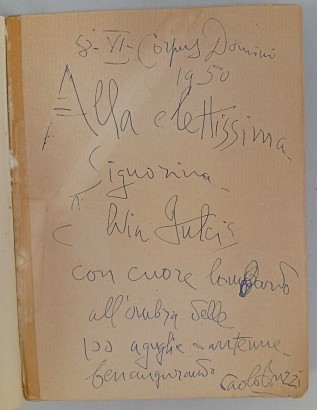 VI - Corpus Domini
1950
Alla elettissima
Signorina
con cuore lombardo
all'ombra delle
100 aguglie antenne
benaugurando Paolo Buzzi